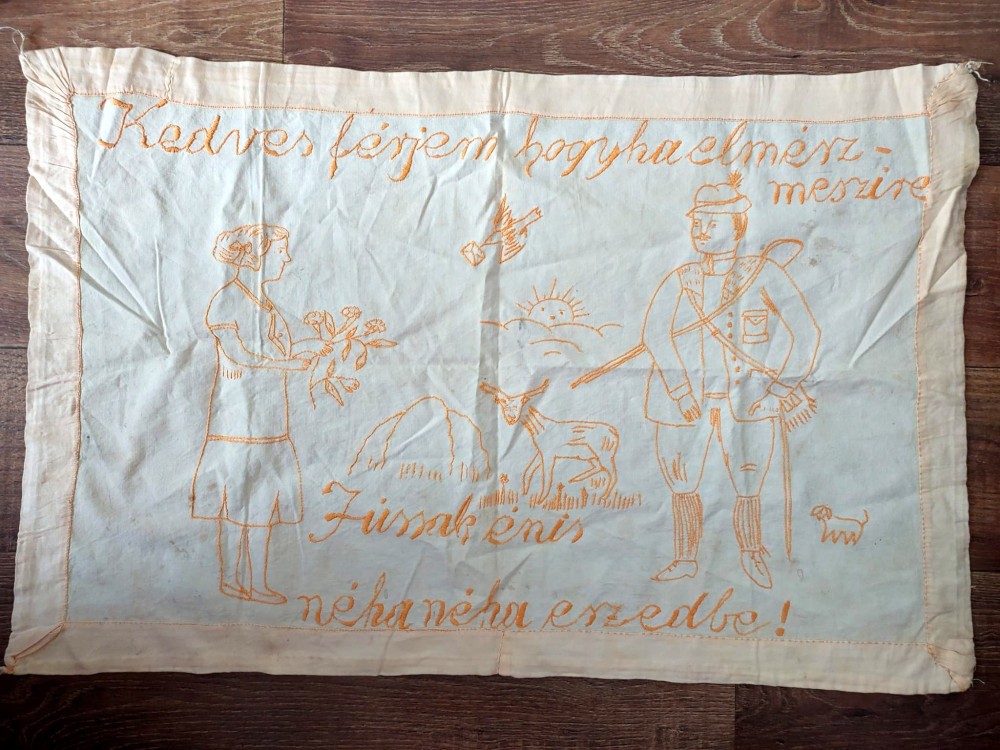 Kedves férjem hogyha elmész -
meszire
Jussak énis
néha néha eszedbe!